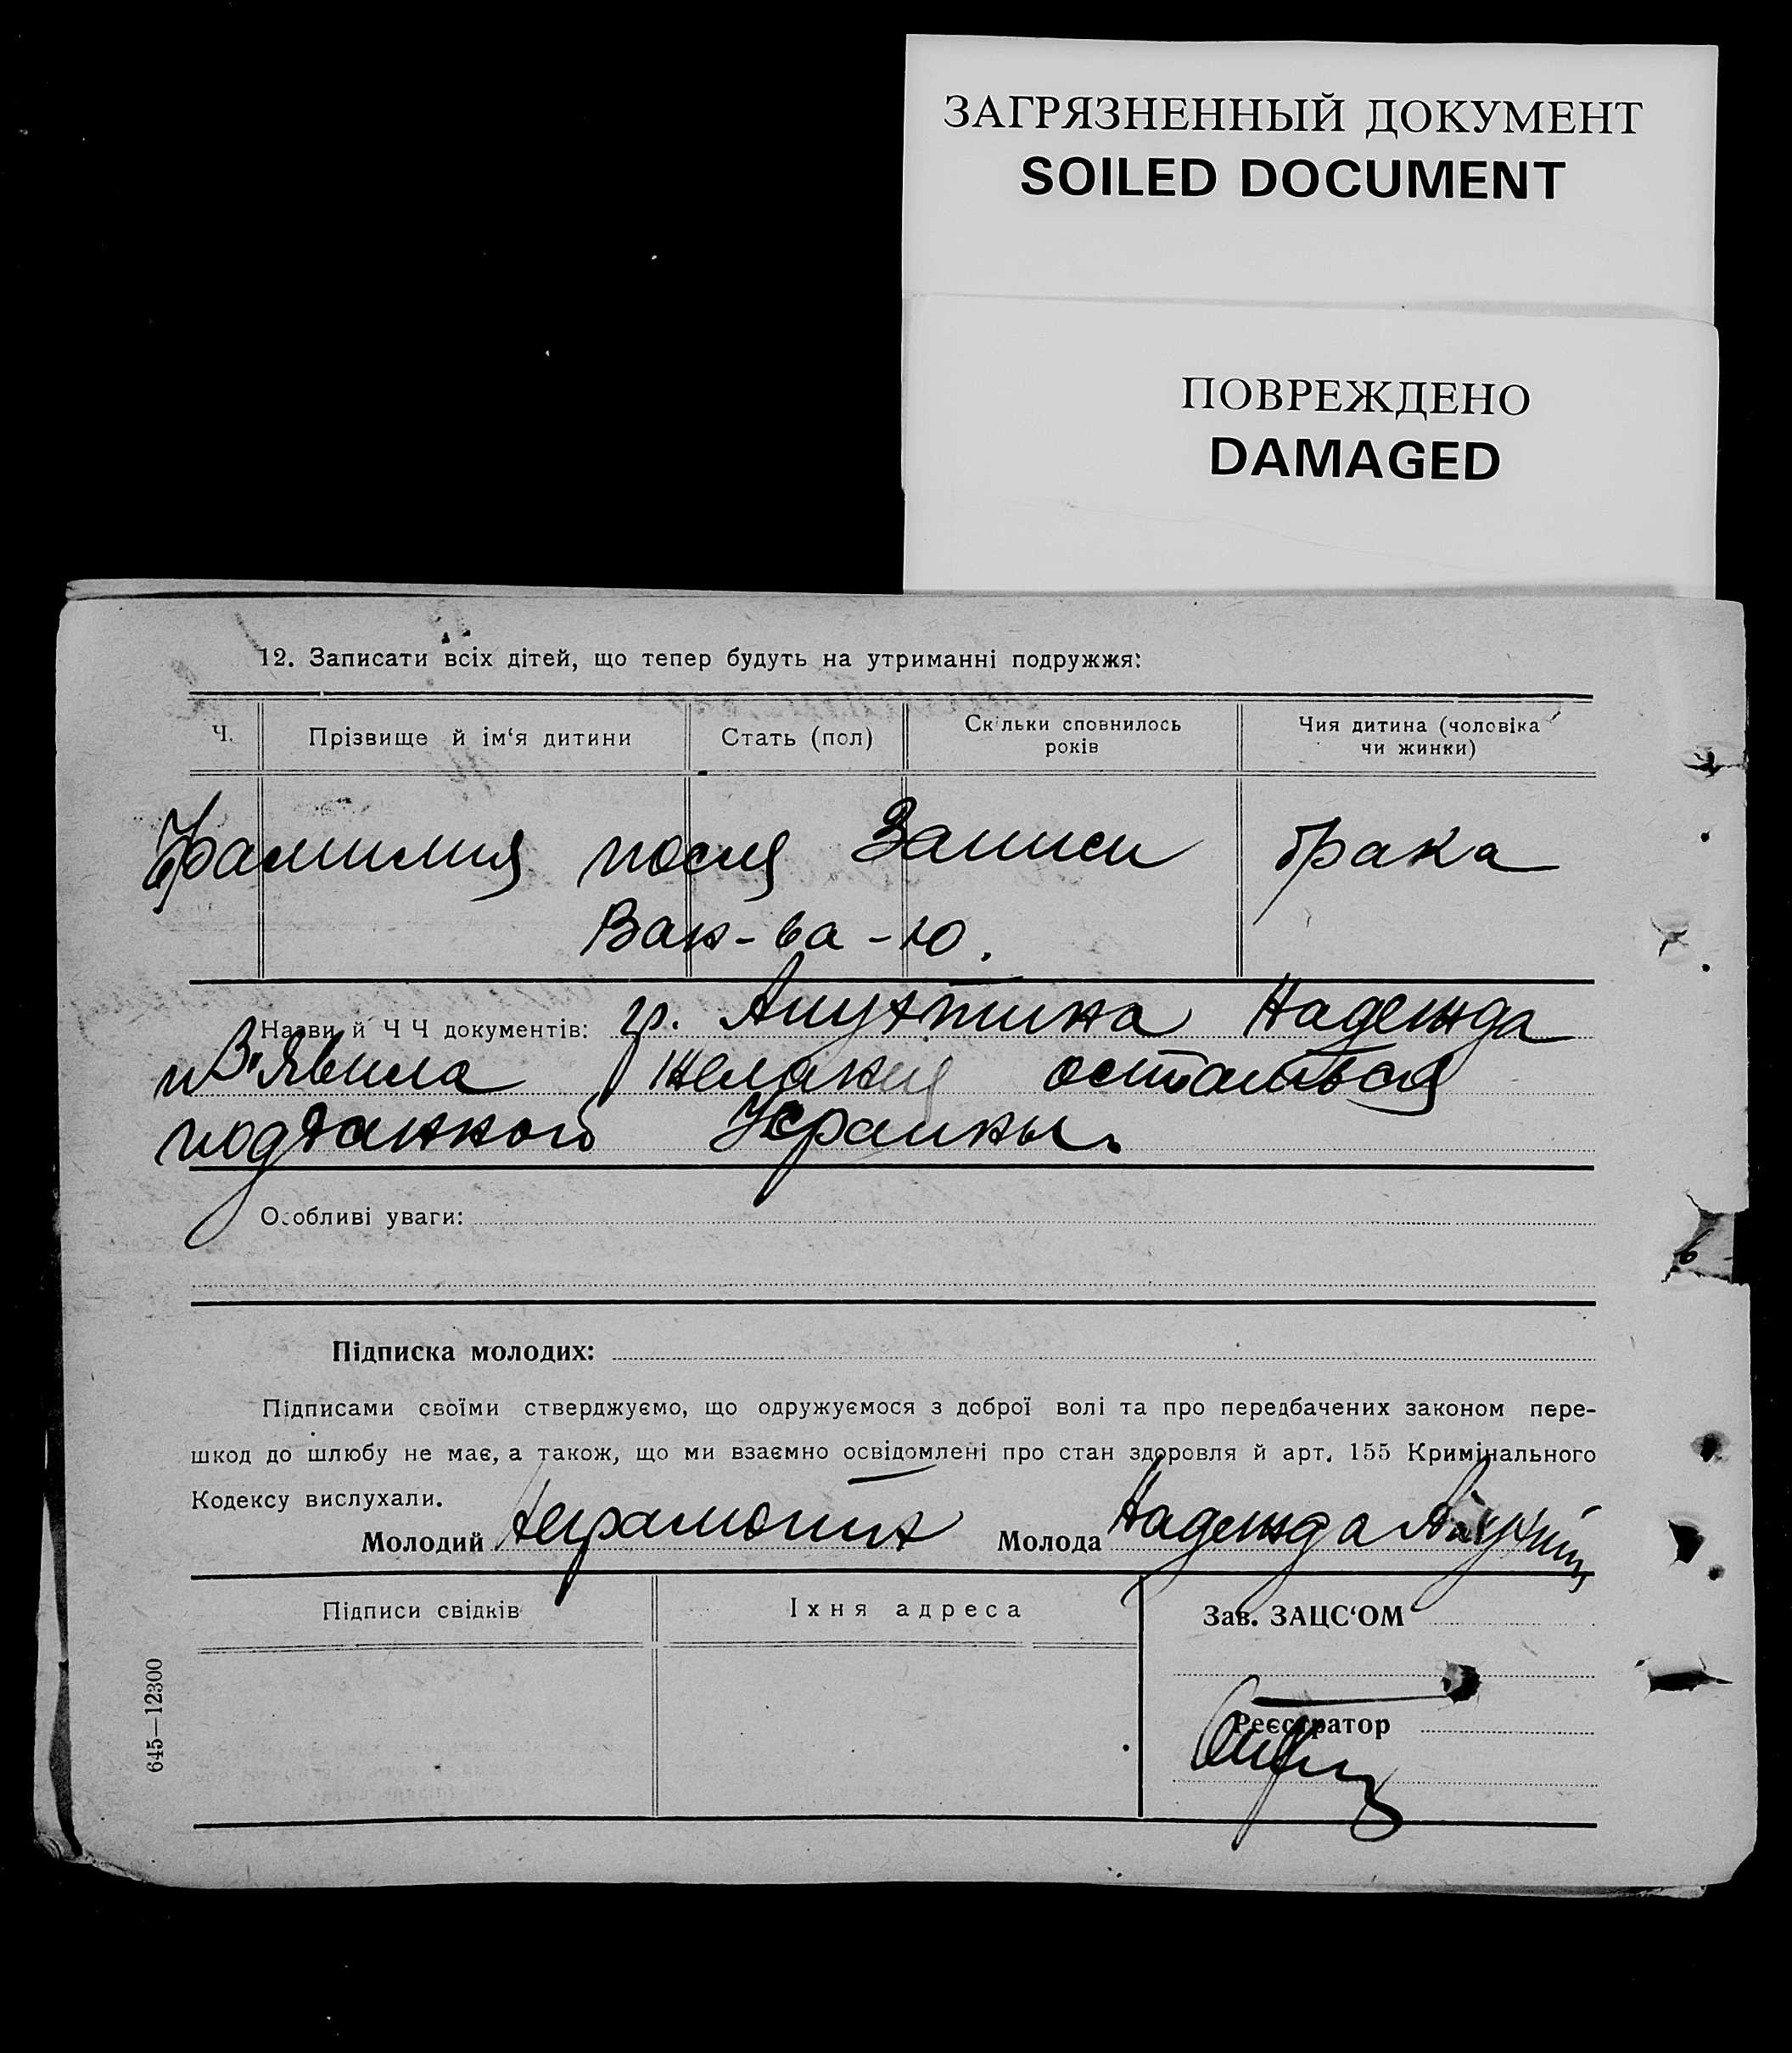 ЗАГРЯЗНЕННЫЙ ДОКУМЕНТ
SOILED DOCUMENT
ПОВРЕЖДЕНО
DAMAGED
12. Записати всіх дітей, що тепер будуть на утриманні подружжя:
Ч. Прізвище й ім‘я дитини Стать (пол) Скільки сповнилось років Чия дитина (чоловіка чи жинки)
Фамилия после Записи брака
Вак-ва-ю.
Назви й Ч Ч документів: гр. Апухтина Надежда
из'явила желания остаться
подданной Украины.
Особливі уваги:
Підписка молодих:
Підписами своїми стверджуємо, що одружуємося з доброї волі та про передбачених законом пере-
шкод до шлюбу не має, а також, що ми взаємно освідомлені про стан здоровля й арт. 155 Кримінального
Кодексу вислухали.
Молодий Молода Надежда
Підписи свідків Їхня адреса Зав. ЗАЦС‘ОМ
Реєстратор
645—12300